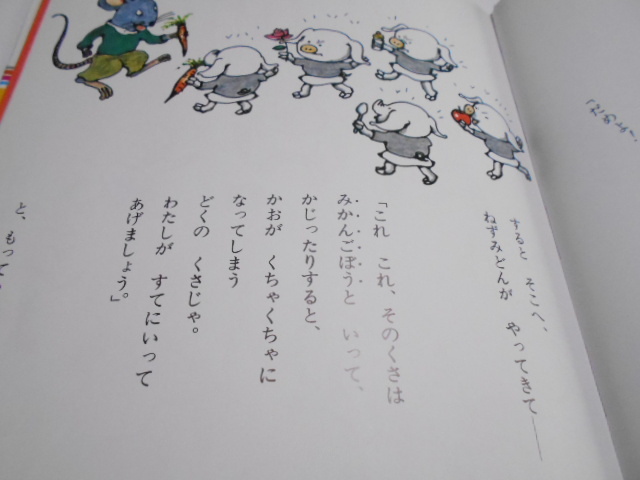 すると　そこへ、
ねずみどんが　やってきて——
「これ　これ、そのくさは
みかんごぼうと　いって、
かじったりすると、
かおが　くちゃくちゃに
なってしまう
どくの　くさじゃ。
わたしが　すてにいって
あげましょう。」
と、もって